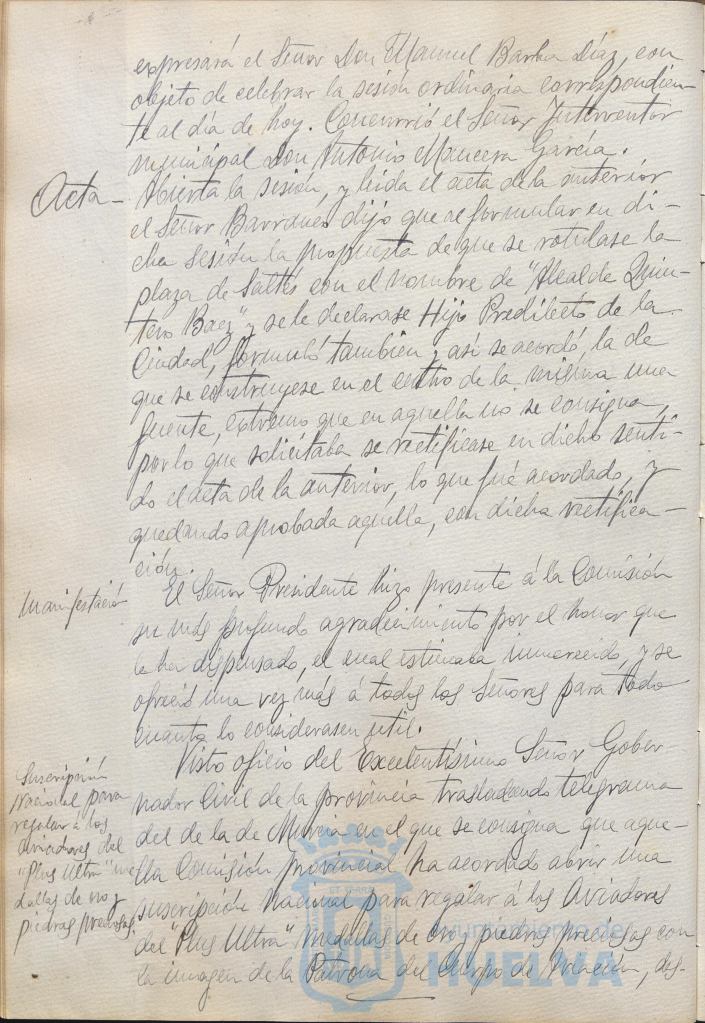 expresará el Señor Don Manuel Barba Díaz, con
objeto de celebrar la sesión ordinaria correspondien-
te al día de hoy. Concurrió el Señor Interventor
municipal Don Antonio Mancera García.
Acta- Abierta la sesión, y leída el acta de la anterior
el Señor Barranco dijo que al formular en di-
cha sesión la propuesta de que se rotulase la
plaza de Saltés con el nombre de "Alcalde Quin-
tero Baez" y se le declarase Hijo Predilecto de la
Ciudad, formuló también y así se acordó, la de
que se construyese en el centro de la misma una
fuente, extremo que en aquella no se consigna,
por lo que solicitaba se rectificase en dicho senti-
do el acta de la anterior, lo que fué acordado, y
quedando aprobada aquélla, con dicha rectifica-
ción.
Manifestación
El Señor Presidente hizo presente á la Comisión
su más profundo agradecimiento por el honor que
le ha dispensado, el cual estimaba inmerecido, y se
ofreció una vez más á todos los Señores para todo
cuanto lo considerasen útil.
Suscripción
Nacional para
regalar á los
aviadores del
"Plus Ultra" me
dallas de oro y
piedras preciosas.
Visto oficio del Excelentísimo Señor Gober-
nador Civil de la provincia trasladando telegrama
del de la de Murcia en el que se consigna que aque-
lla Comisión provincial ha acordado abrir una
suscripción nacional para regalar á los Aviadores
del "Plus Ultra" medallas de oro y piedras preciosas con
la imagen de la Patrona del Cuerpo de Aviación, des-
Ayuntamiento de
HUELVA